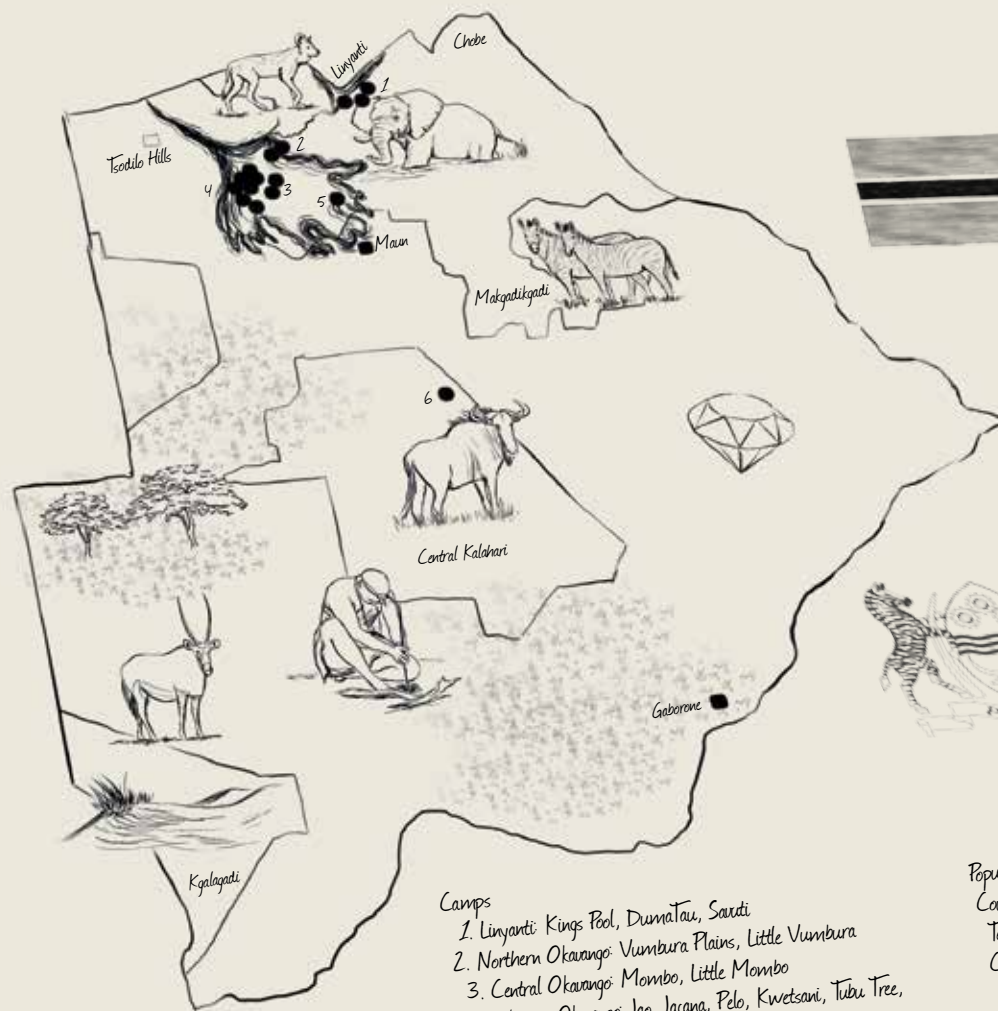 Chobe
Linyanti
1
Tsodilo Hills
2
4
3
5
Maun
Makgadikgadi
6
Central Kalahari
Gaborone
Kgalagadi
Camps
1. Linyanti: Kings Pool, DumaTau, Savuti
2. Northern Okavango: Vumbura Plains, Little Vumbura
3. Central Okavango: Mombo, Little Mombo
Jao, Jacana, Pelo, Kwetsani, Tubu Tree,